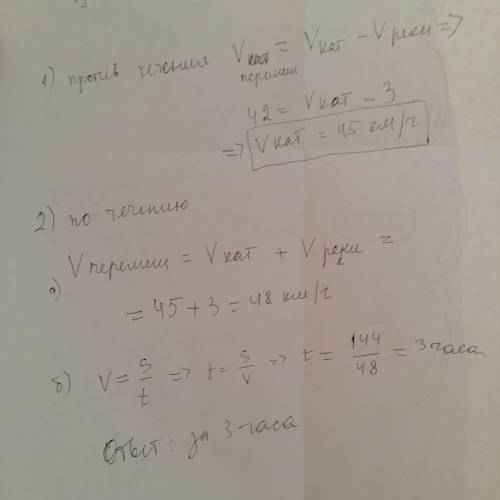 1) против течения Vкат перемещ = Vкат – Vреки =>
42 = Vкат – 3
=> Vкат = 45 км/ч
2) по течению
а) Vперемещ = Vкат + Vреки =
= 45 + 3 = 48 км/ч
б) V = S/t => t = S/V => t = 144/48 = 3 часа
Ответ: за 3 часа